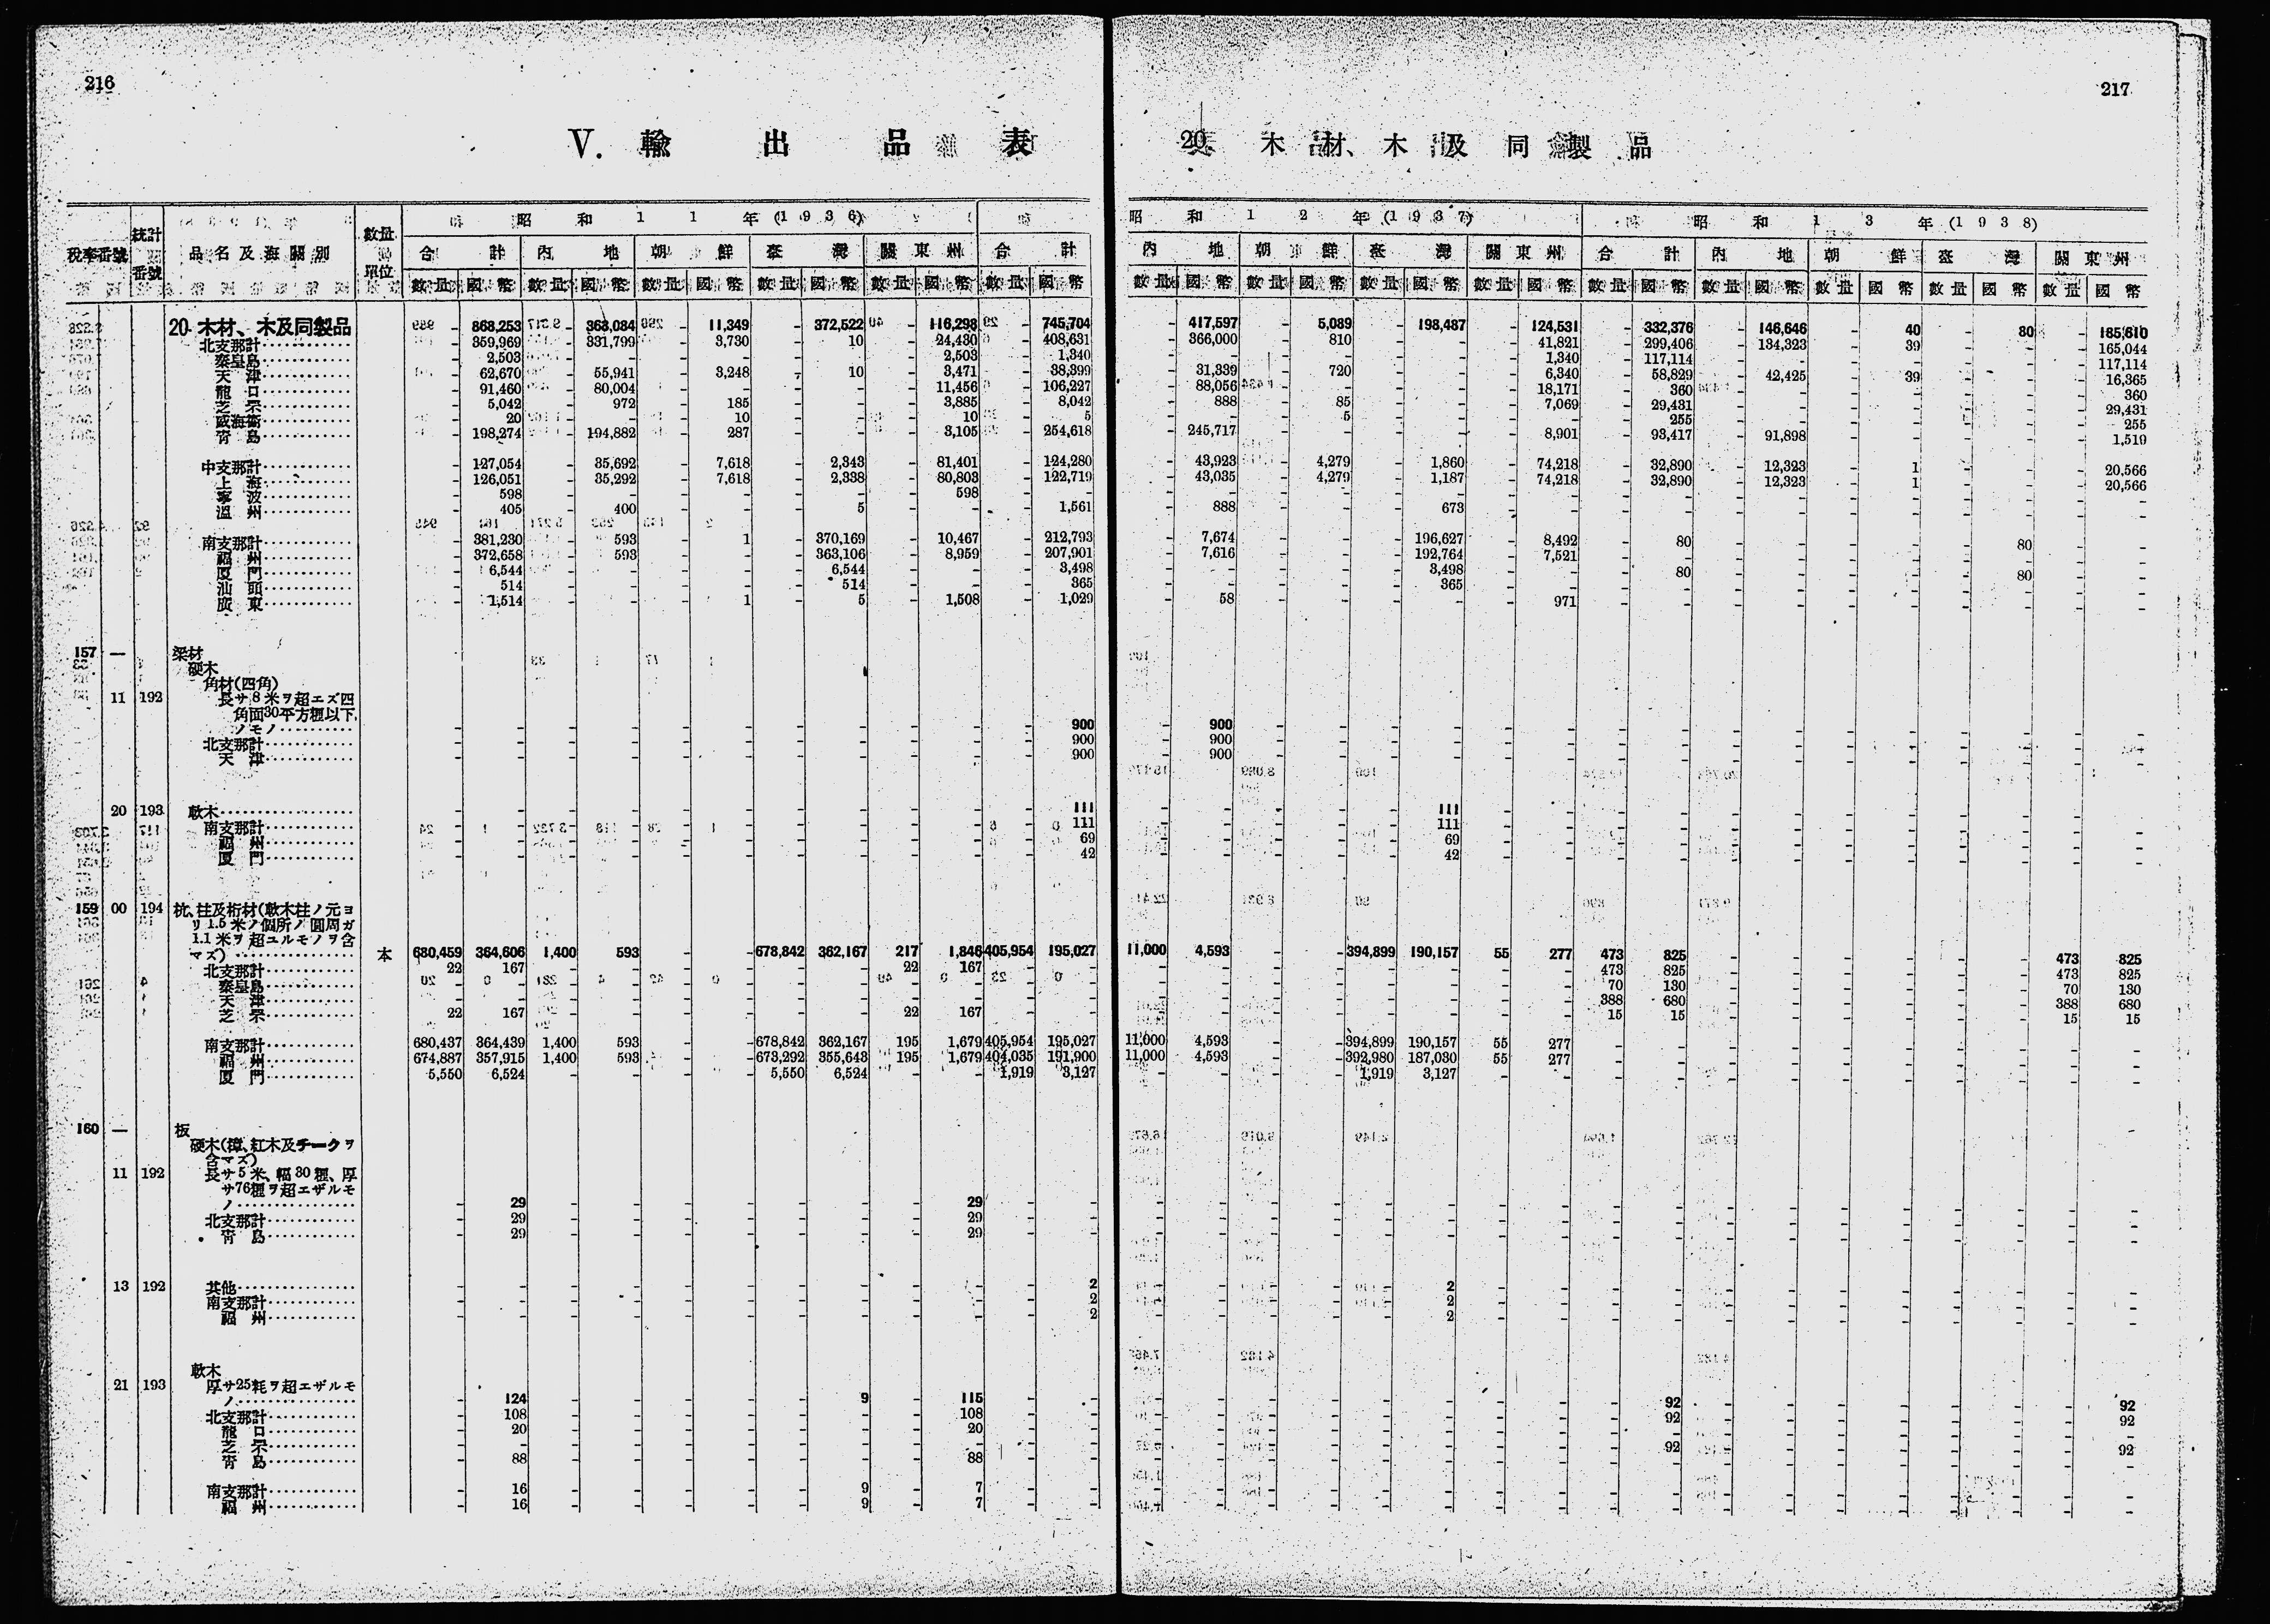 216
V. 輸出品表
稅率番號 統計番號 品名及海關別 數量單位 昭和11年(1936) 
合計 內地 朝鮮 臺灣 關東州 合計
數量 國幣 數量 國幣 數量 國幣 數量 國幣 數量 國幣 數量 國幣
20. 木材、木及同製品 - 868,253 - 363,084 - 11,349 - 372,522 - 116,298 - 745,704
北支那計 - 359,969 - 331,799 - 3,730 - 10 - 24,430 - 408,631
秦皇島 - 2,503 - - - - - - - 2,503 - 1,340
天津 - 62,670 - 55,941 - 3,248 - 10 - 3,471 - 38,399
龍口 - 91,460 - 80,004 - - - - - 11,456 - 106,227
芝罘 - 5,042 - 972 - 185 - - - 3,885 - 8,042
威海衞 - 20 - - - 10 - - - 10 - 5
靑島 - 198,274 - 194,882 - 287 - - - 3,105 - 254,618
中支那計 - 127,054 - 35,692 - 7,618 - 2,343 - 81,401 - 124,280
上海 - 126,051 - 35,292 - 7,618 - 2,338 - 80,803 - 122,719
寧波 - 598 - - - - - - - 598 - -
溫州 - 405 - 400 - - - 5 - - - 1,561
南支那計 - 381,230 - 593 - 1 - 370,169 - 10,467 - 212,793
福州 - 372,658 - 593 - - - 363,106 - 8,959 - 207,901
厦門 - 6,544 - - - - - 6,544 - - - 3,498
汕頭 - 514 - - - - - 514 - - - 365
廣東 - 1,514 - - - 1 - 5 - 1,508 - 1,029
157 — 梁材
硬木
角材(四角)
11 192 長サ8米ヲ超エズ四
角面30平方糎以下
ノモノ - - - - - - - - - - - 900
北支那計 - - - - - - - - - - - 900
天津 - - - - - - - - - - - 900
20 193 軟木 - - - - - - - - - - - 111
南支那計 - - - - - - - - - - - 111
福州 - - - - - - - - - - - 69
厦門 - - - - - - - - - - - 42
159 00 194 杭、柱及桁材(軟木柱ノ元ヨ
リ1.5米ノ個所ノ圓周ガ
1.1米ヲ超ユルモノヲ含
マズ) 本 680,459 364,606 1,400 593 - - 678,842 362,167 217 1,846 405,954 195,027
北支那計 22 167 - - - - - - 22 167 - -
秦皇島 - - - - - - - - - - - -
天津 - - - - - - - - - - - -
芝罘 22 167 - - - - - - 22 167 - -
南支那計 680,437 364,439 1,400 593 - - 678,842 362,167 195 1,679 405,954 195,027
福州 674,887 357,915 1,400 593 - - 673,292 355,643 195 1,679 404,035 191,900
厦門 5,550 6,524 - - - - 5,550 6,524 - - 1,919 3,127
160 — 板
硬木(樟、紅木及チークヲ
含マズ)
11 192 長サ5米、幅30糎、厚
サ76糎ヲ超エザルモ
ノ - 29 - - - - - - - 29 - -
北支那計 - 29 - - - - - - - 29 - -
靑島 - 29 - - - - - - - 29 - -
13 192 其他 - - - - - - - - - - - 2
南支那計 - - - - - - - - - - - 2
福州 - - - - - - - - - - - 2
軟木
21 193 厚サ25粍ヲ超エザルモ
ノ - 124 - - - - - 9 - 115 - -
北支那計 - 108 - - - - - - - 108 - -
龍口 - 20 - - - - - - - 20 - -
芝罘 - - - - - - - - - - - -
靑島 - 88 - - - - - - - 88 - -
南支那計 - 16 - - - - - 9 - 7 - -
福州 - 16 - - - - - 9 - 7 - -
217
20. 木材、木及同製品
昭和12年(1937) 昭和13年(1938)
內地 朝鮮 臺灣 關東州 合計 內地 朝鮮 臺灣 關東州
數量 國幣 數量 國幣 數量 國幣 數量 國幣 數量 國幣 數量 國幣 數量 國幣 數量 國幣 數量 國幣
- 417,597 - 5,089 - 198,487 - 124,531 - 332,376 - 146,646 - 40 - 80 - 185,610
- 366,000 - 810 - - - 41,821 - 299,406 - 134,323 - 39 - - - 165,044
- - - - - - - 1,340 - 117,114 - - - - - - - 117,114
- 31,339 - 720 - - - 6,340 - 58,829 - 42,425 - 39 - - - 16,365
- 88,056 - - - - - 18,171 - 360 - - - - - - - 360
- 888 - 85 - - - 7,069 - 29,431 - - - - - - - 29,431
- - - 5 - - - - - 255 - - - - - - - 255
- 245,717 - - - - - 8,901 - 93,417 - 91,898 - - - - - 1,519
- 43,923 - 4,279 - 1,860 - 74,218 - 32,890 - 12,323 - 1 - - - 20,566
- 43,035 - 4,279 - 1,187 - 74,218 - 32,890 - 12,323 - 1 - - - 20,566
- - - - - - - - - - - - - - - - - -
- 888 - - - 673 - - - - - - - - - - - -
- 7,674 - - - 196,627 - 8,492 - 80 - - - - - 80 - -
- 7,616 - - - 192,764 - 7,521 - - - - - - - - - -
- - - - - 3,498 - - - 80 - - - - - 80 - -
- - - - - 365 - - - - - - - - - - - -
- 58 - - - - - 971 - - - - - - - - - -
- 900 - - - - - - - - - - - - - - - -
- 900 - - - - - - - - - - - - - - - -
- 900 - - - - - - - - - - - - - - - -
- - - - - 111 - - - - - - - - - - - -
- - - - - 111 - - - - - - - - - - - -
- - - - - 69 - - - - - - - - - - - -
- - - - - 42 - - - - - - - - - - - -
11,000 4,593 - - 394,899 190,157 55 277 473 825 - - - - - - 473 825
- - - - - - - - 473 825 - - - - - - 473 825
- - - - - - - - 70 130 - - - - - - 70 130
- - - - - - - - 388 680 - - - - - - 388 680
- - - - - - - - 15 15 - - - - - - 15 15
11,000 4,593 - - 394,899 190,157 55 277 - - - - - - - - - -
11,000 4,593 - - 392,980 187,030 55 277 - - - - - - - - - -
- - - - 1,919 3,127 - - - - - - - - - - - -
- - - - - - - - - - - - - - - - - -
- - - - - - - - - - - - - - - - - -
- - - - - - - - - - - - - - - - - -
- - - - - 2 - - - - - - - - - - - -
- - - - - 2 - - - - - - - - - - - -
- - - - - 2 - - - - - - - - - - - -
- - - - - - - - - 92 - - - - - - - 92
- - - - - - - - - 92 - - - - - - - 92
- - - - - - - - - - - - - - - - - -
- - - - - - - - - 92 - - - - - - - 92
- - - - - - - - - - - - - - - - - -
- - - - - - - - - - - - - - - - - -
- - - - - - - - - - - - - - - - - -